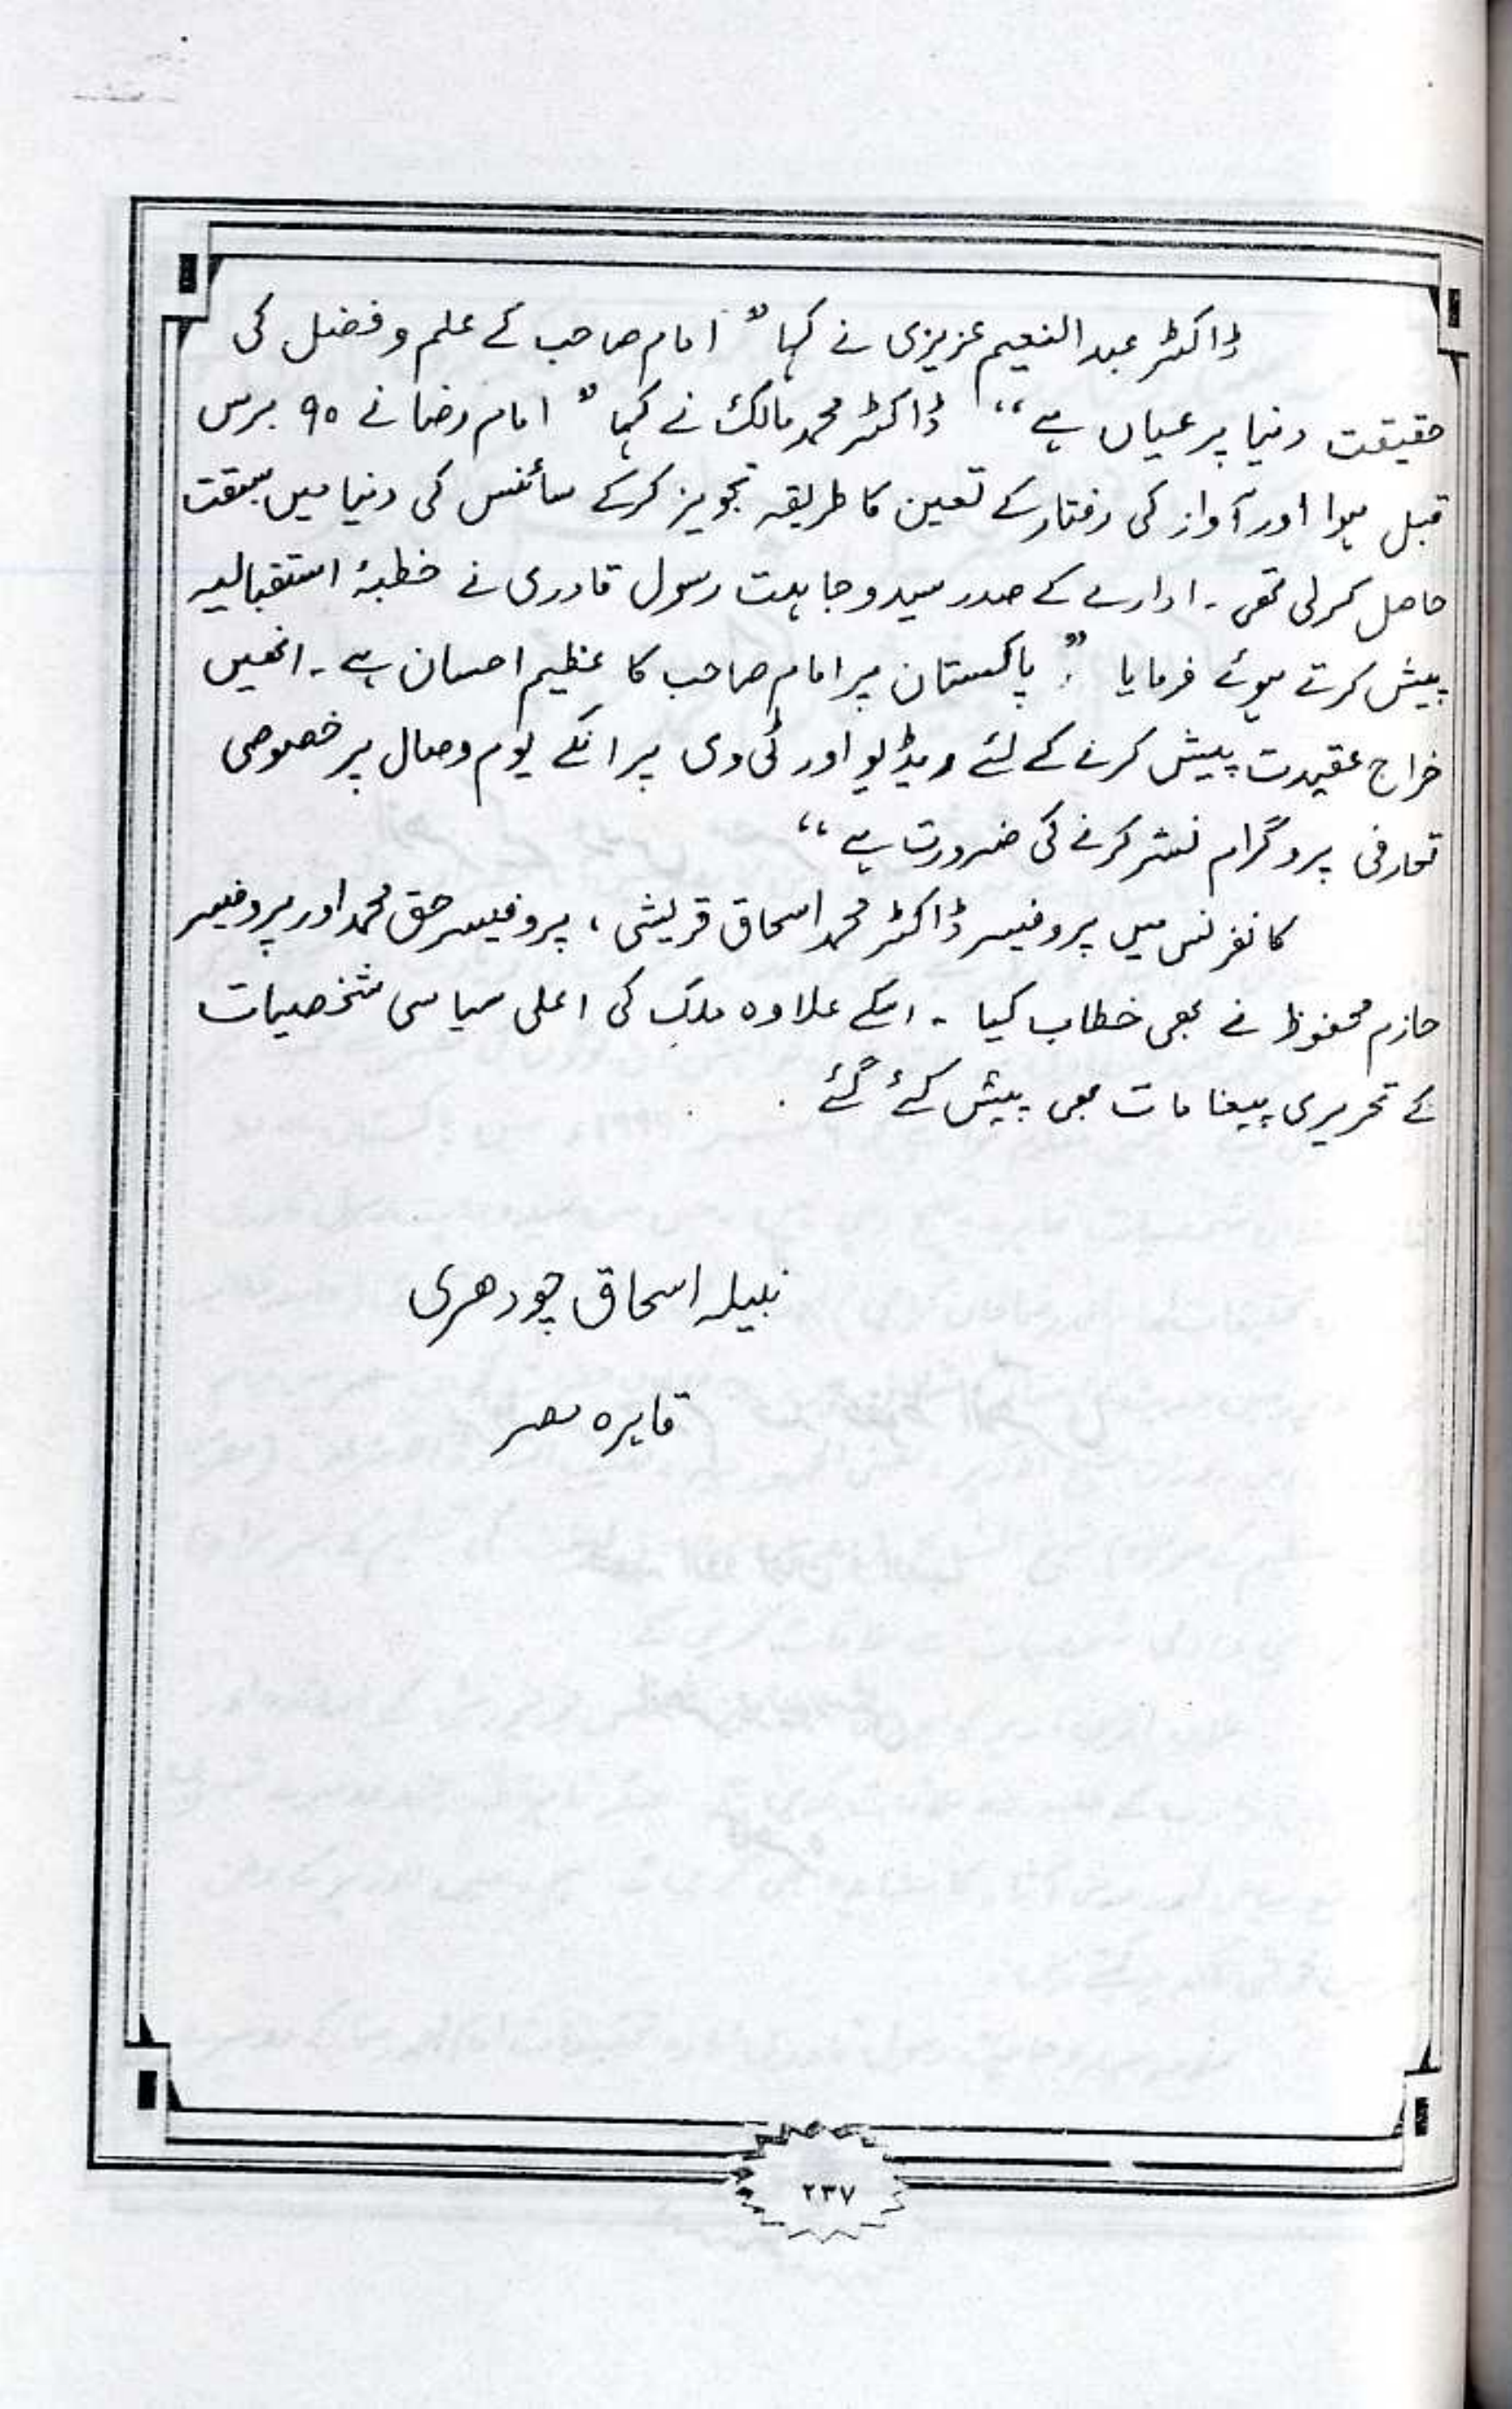 ڈاکٹر عبدالنعیم عزیزی نے کہا ” امام صاحب کے علم و فضل کی
حقیقت دنیا پر عیاں ہے “ ڈاکٹر محمد مالک نے کہا ” امام رضا نے ۹۰ برس
قبل ہوا اور آواز کی رفتار کے تعین کا طریقہ تجویز کرکے سائنس کی دنیا میں سبقت
حاصل کرلی تھی ۔ ادارے کے صدر سید وجاہت رسول قادری نے خطبۂ استقبالیہ
پیش کرتے ہوئے فرمایا ” : پاکستان پر امام صاحب کا عظیم احسان ہے ۔ انھیں
خراج عقیدت پیش کرنے کے لئے ویڈیو اور ٹی وی پر انکے یوم وصال پر خصوصی
تعارفی پروگرام نشر کرنے کی ضرورت ہے “
کانفرنس میں پروفیسر ڈاکٹر محمد اسحاق قریشی ، پروفیسر حق محمد اور پروفیسر
حازم محفوظ نے بھی خطاب کیا ۔ اسکے علاوہ ملک کی اعلی سیاسی شخصیات
کے تحریری پیغامات بھی پیش کئے گئے .
نبیلہ اسحاق چودھری
قاہرہ مصر
۲۳۷